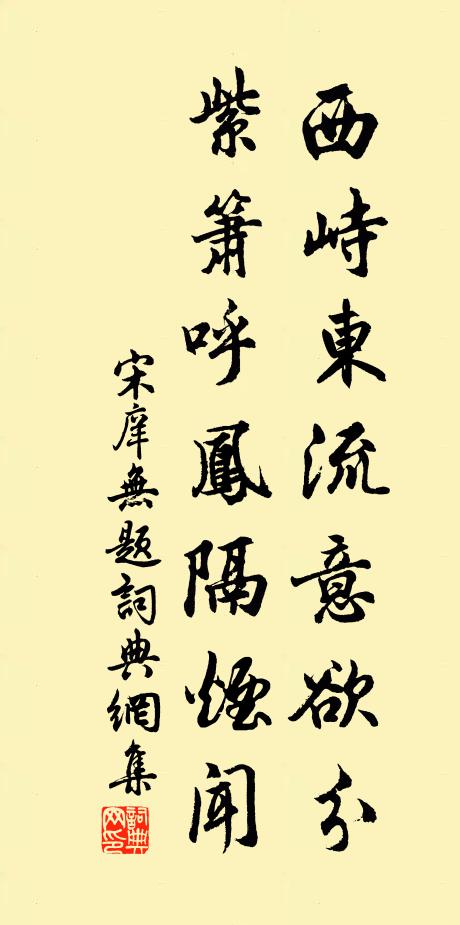 西峙東流意欲分
紫簫呼鳳隔煙聞
宋庠無題詞典網集
詞典网印